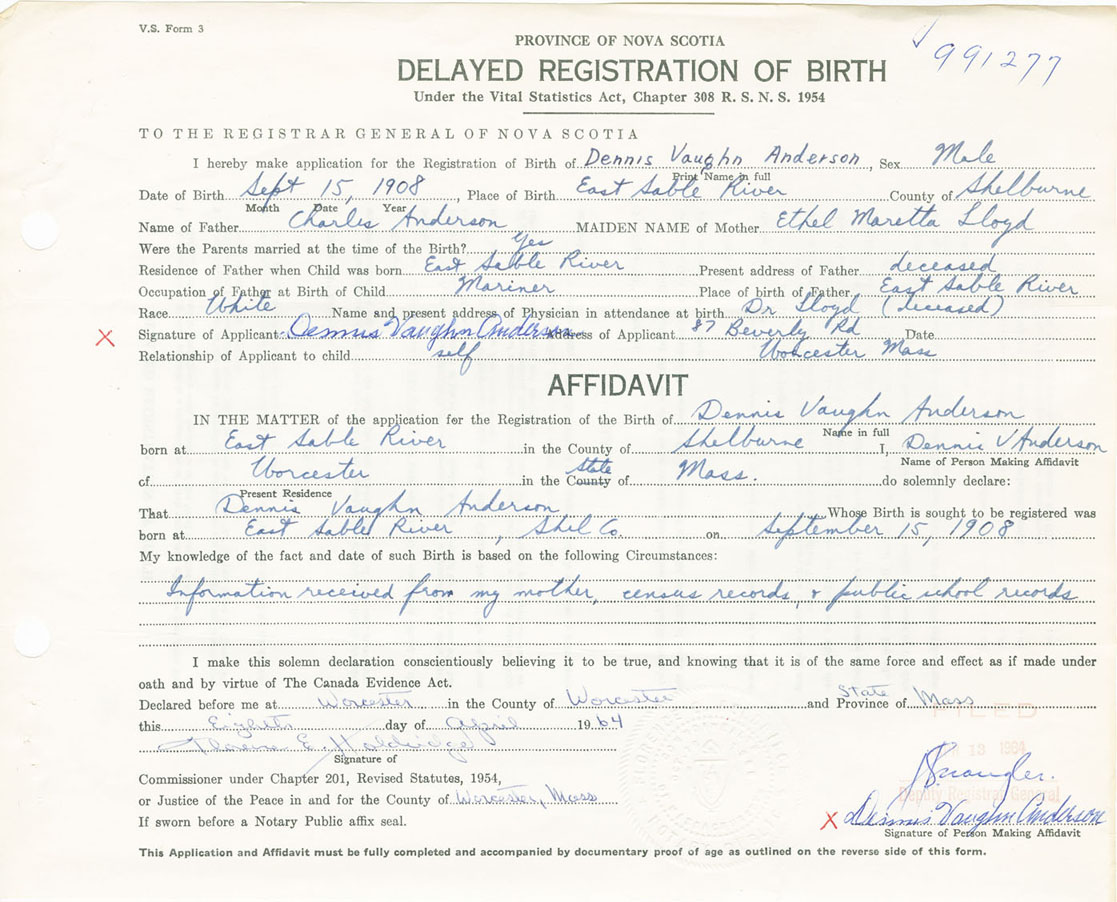 V.S. Form 3
991277
PROVINCE OF NOVA SCOTIA
DELAYED REGISTRATION OF BIRTH
Under the Vital Statistics Act, Chapter 308 R. S. N. S. 1954
TO THE REGISTRAR GENERAL OF NOVA SCOTIA
I hereby make application for the Registration of Birth of Dennis Vaughn Anderson, Sex Male
Print Name in full
Date of Birth Sept 15, 1908, Place of Birth East Sable River County of Shelburne
Month Date Year
Name of Father Charles Anderson MAIDEN NAME of Mother Ethel Maretta Lloyd
Were the Parents married at the time of the Birth? Yes
Residence of Father when Child was born East Sable River Present address of Father deceased
Occupation of Father at Birth of Child Mariner Place of birth of Father East Sable River
Race White Name and present address of Physician in attendance at birth Dr Lloyd (deceased)
X Signature of Applicant Dennis Vaughn Anderson Address of Applicant 87 Beverly Rd Date
Relationship of Applicant to child self Worcester Mass
AFFIDAVIT
IN THE MATTER of the application for the Registration of the Birth of Dennis Vaughn Anderson
Name in full
born at East Sable River in the County of Shelburne I, Dennis V Anderson
Name of Person Making Affidavit
of Worcester in the County of State Mass. do solemnly declare:
Present Residence
That Dennis Vaughn Anderson Whose Birth is sought to be registered was
born at East Sable River, Shel Co. on September 15, 1908
My knowledge of the fact and date of such Birth is based on the following Circumstances:
Information received from my mother, census records, & public school records
I make this solemn declaration conscientiously believing it to be true, and knowing that it is of the same force and effect as if made under
oath and by virtue of The Canada Evidence Act.
Declared before me at Worcester in the County of Worcester and State Province of Mass
this Eighth day of April 1964
FILED
E. Holdridge
Signature of
13 1964
Commissioner under Chapter 201, Revised Statutes, 1954,
Deputy Registrar General
or Justice of the Peace in and for the County of Worcester, Mass
X Dennis Vaughn Anderson
If sworn before a Notary Public affix seal.
Signature of Person Making Affidavit
This Application and Affidavit must be fully completed and accompanied by documentary proof of age as outlined on the reverse side of this form.